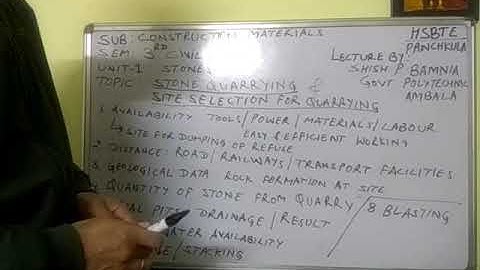 SUB: CONSTRUCTION MATERIALS
HSBTE
PANCHKULA
SEM: 3RD CIVIL
LECTURE BY:
UNIT-1 STONES
SHISH P BAMNIA
TOPIC STONE QUARRYING &
GOVT POLYTECHNIC
AMBALA
SITE SELECTION FOR QUARRYING
1 AVAILABILITY TOOLS/POWER/MATERIALS/LABOUR
↳ SITE FOR DUMPING OF REFUSE EASY & EFFICIENT WORKING
2 DISTANCE: ROAD/RAILWAYS/TRANSPORT FACILITIES
3 GEOLOGICAL DATA ROCK FORMATION AT SITE
QUANTITY OF STONE FROM QUARRY
8 BLASTING
PITS DRAINAGE/RESULT
WATER AVAILABILITY
/STACKING